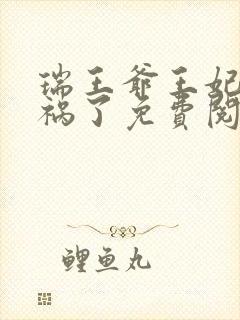 瑞王爷王妃
祸了免费阅
鲤鱼丸